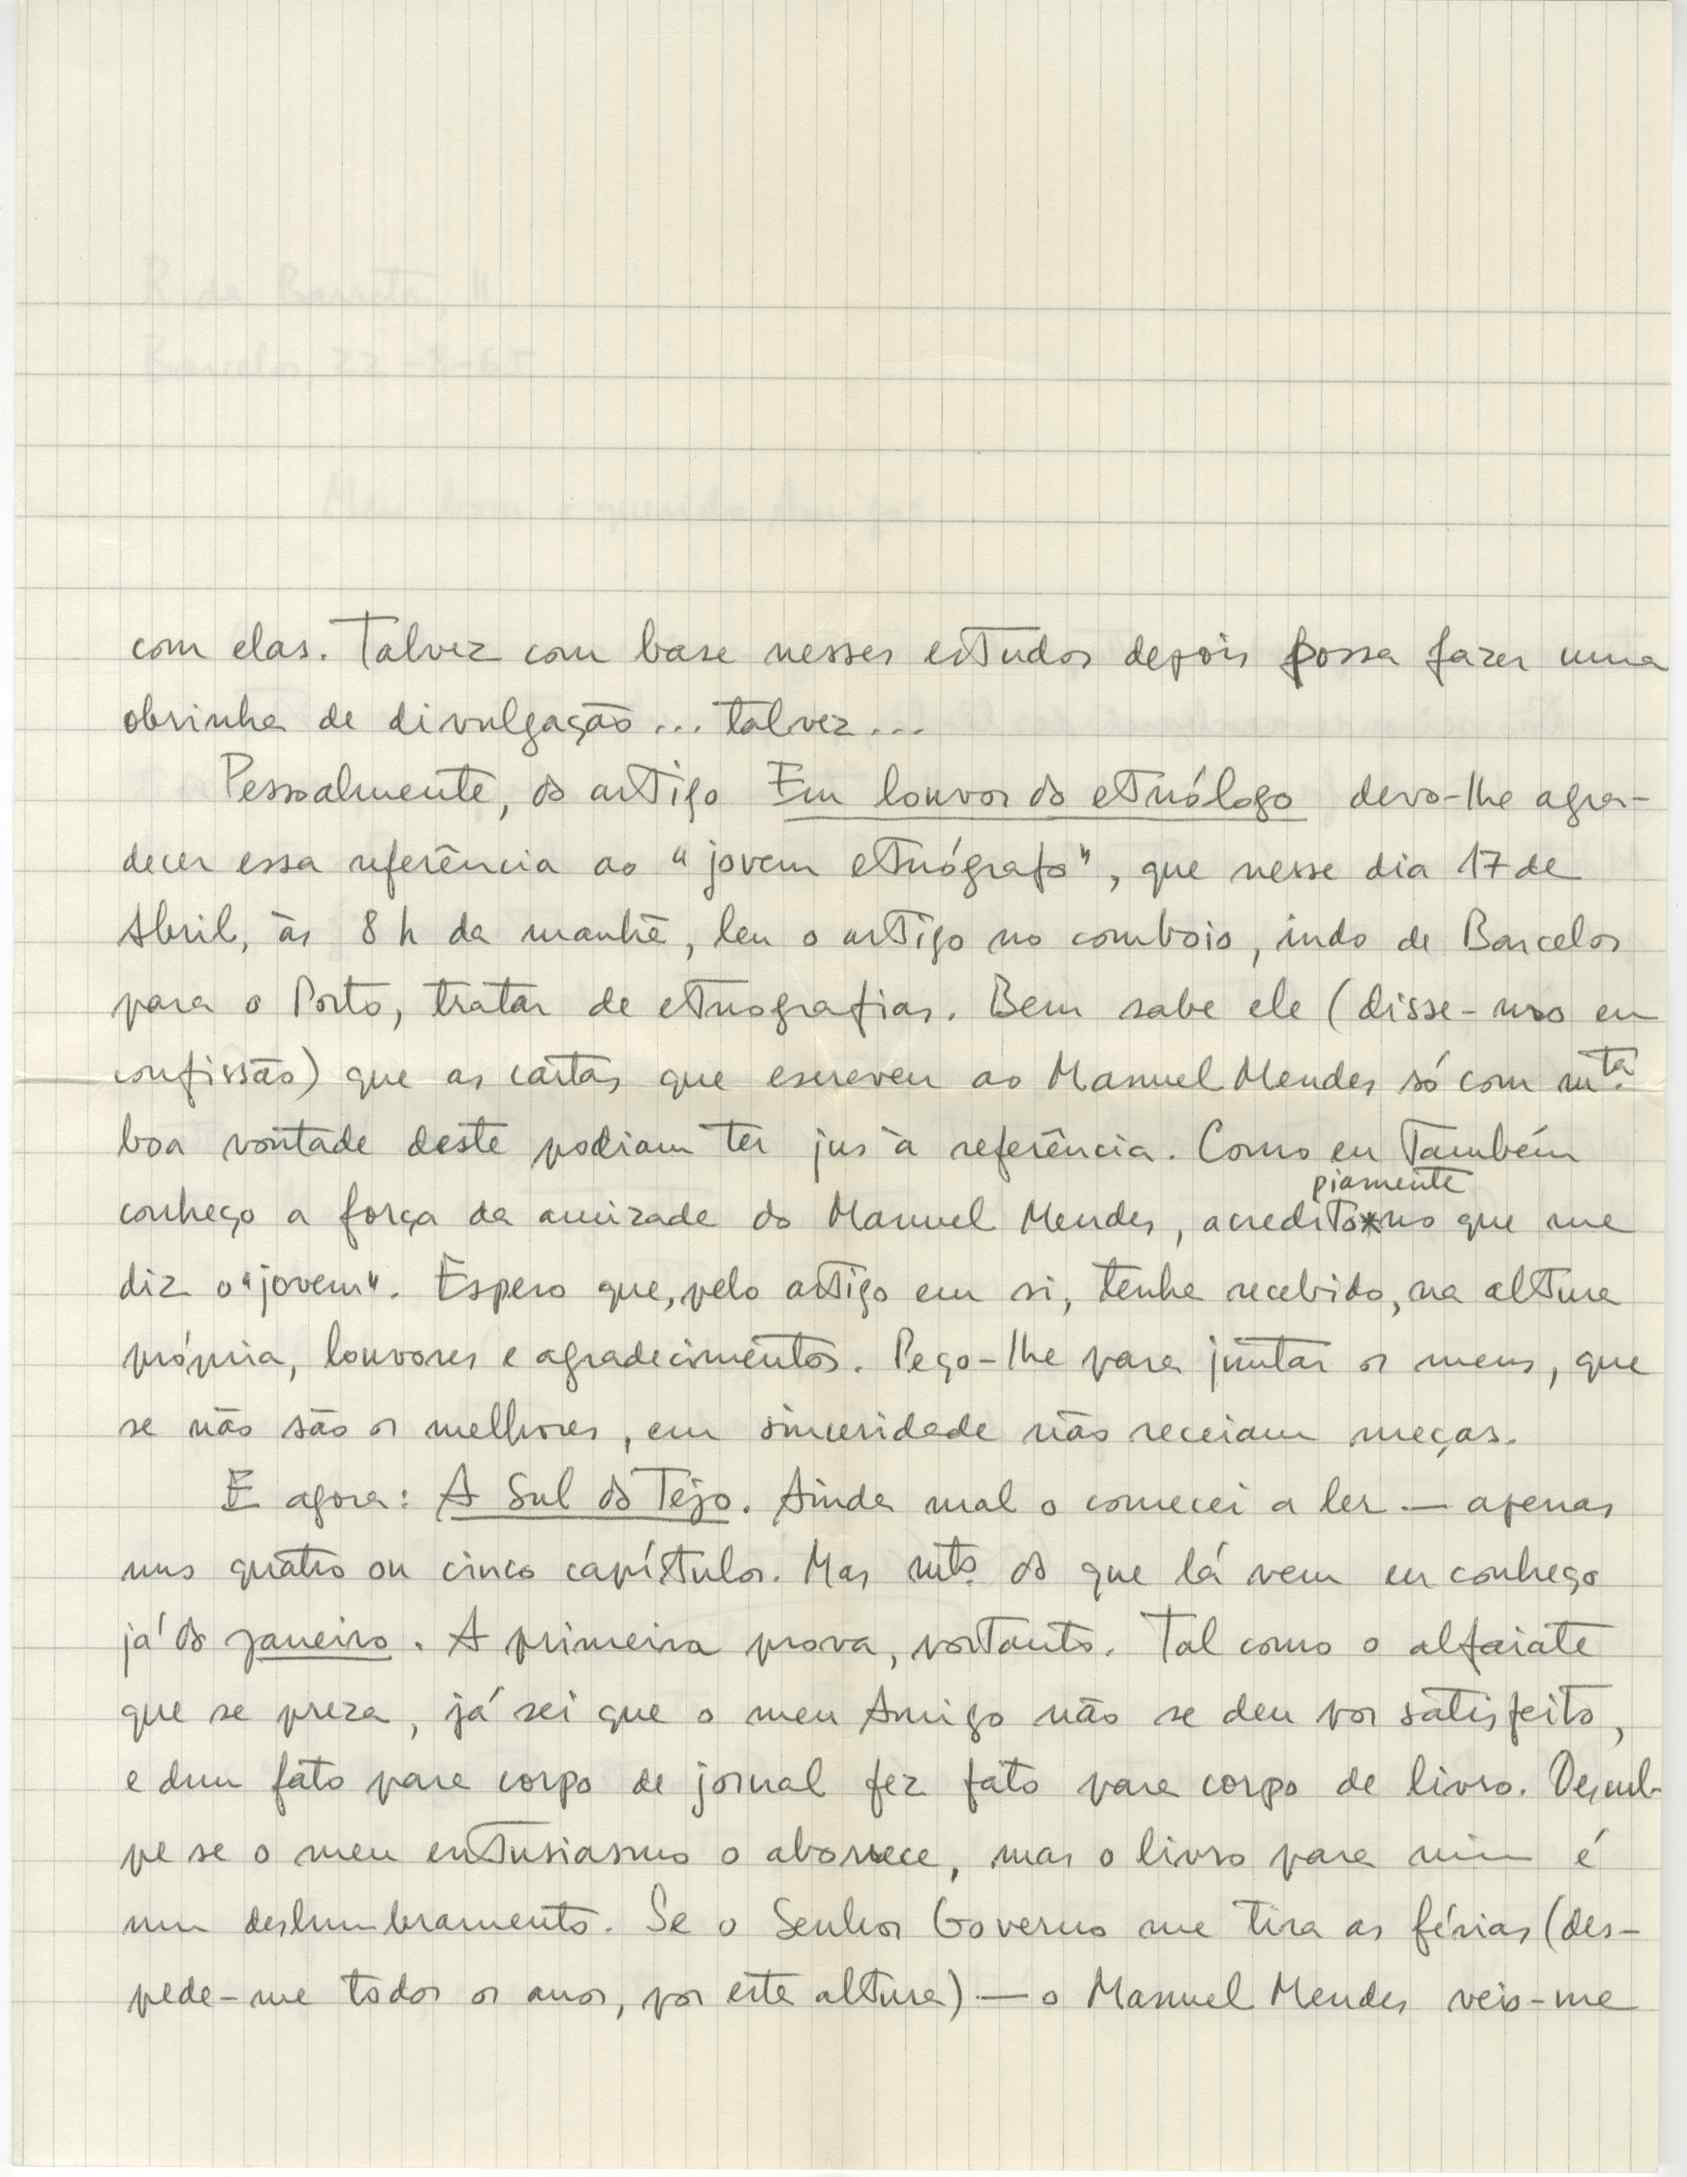 com elas. Talvez com base nesses estudos depois possa fazer uma
obrinha de divulgação... talvez...
Pessoalmente, do artigo Em louvor do etnólogo devo-lhe agra-
decer essa referência ao "jovem etnógrafo", que nesse dia 17 de
Abril, às 8 h da manhã, leu o artigo no comboio, indo de Barcelos
para o Porto, tratar de etnografias. Bem sabe ele (disse-mo em
confissão) que as cartas que escreveu ao Manuel Mendes só com mta.
boa vontade deste podiam ter jus à referência. Como eu também
piamente
conheço a força da amizade do Manuel Mendes, acredito no que me
diz o "jovem". Espero que, pelo artigo em si, tenha recebido, na altura
própria, louvores e agradecimentos. Peço-lhe para juntar os meus, que
se não são os melhores, em sinceridade não receiam meças.
E agora: A Sul do Tejo. Ainda mal o comecei a ler — apenas
uns quatro ou cinco capítulos. Mas mto. do que lá vem eu conheço
já do Janeiro. A primeira prova, portanto. Tal como o alfaiate
que se preza, já sei que o meu Amigo não se deu por satisfeito,
e dum fato para corpo de jornal fez fato para corpo de livro. Descul-
pe se o meu entusiasmo o aborrece, mas o livro para mim é
um deslumbramento. Se o Senhor Governo me tira as férias (des-
pede-me todos os anos, por esta altura) — o Manuel Mendes veio-me